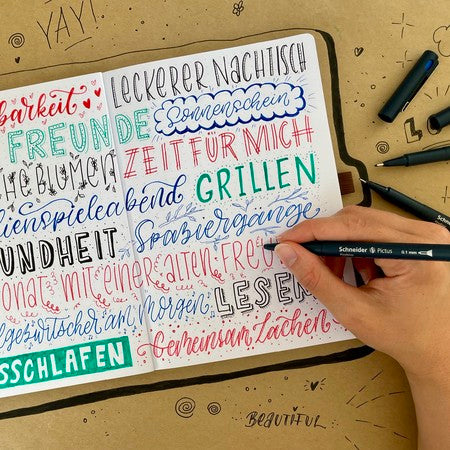 YAY!
LECKERER NACHTISCH
barkeit
FREUNDE Sonnenschein
ZEIT FÜR MICH
HE BLUMEN
GRILLEN
ilienspieleabend
Spaziergänge
UNDHEIT
onat mit einer alten Freu
LESEN
gezwitscher am Morgen
Gemeinsam Lachen
SSCHLAFEN
Schneider Pictus 0.1 mm
BEAUTIFUL